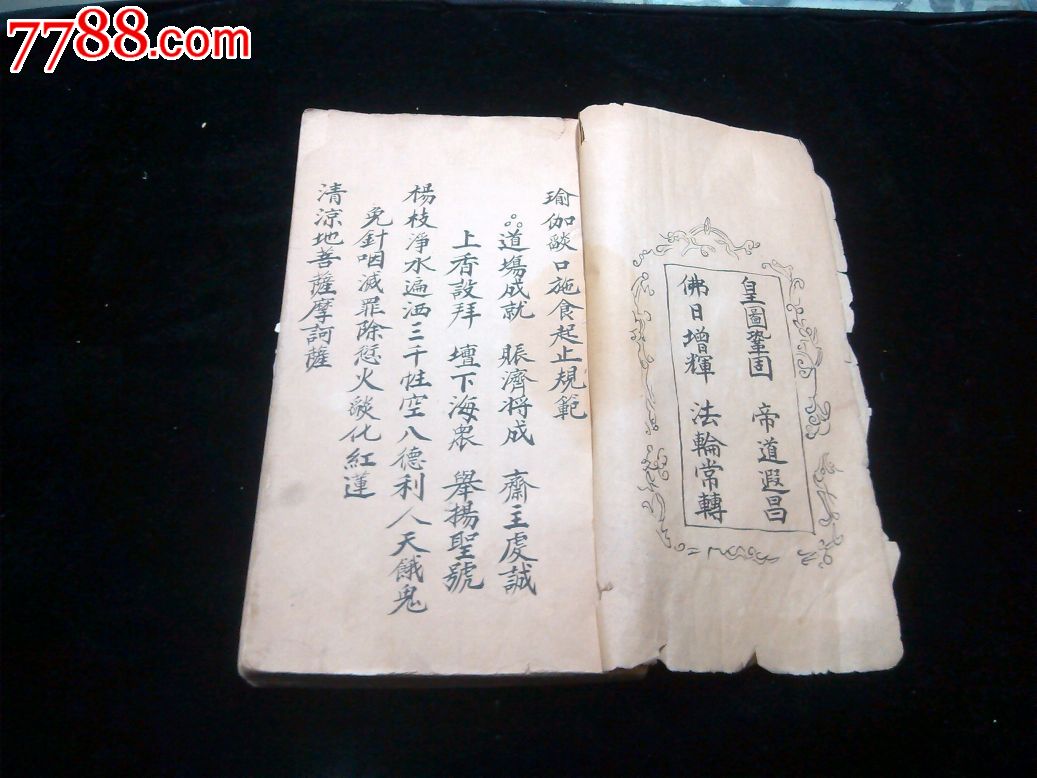 7788.com
皇圖鞏固 帝道遐昌
佛日增輝 法輪常轉
瑜伽燄口施食起止規範
道場成就 賑濟将成 齋主虔誠
上香設拜 壇下海眾 舉揚聖號
楊枝淨水遍洒三千性空八德利人天餓鬼
免針咽滅罪除愆火燄化紅蓮
清涼地菩薩摩訶薩